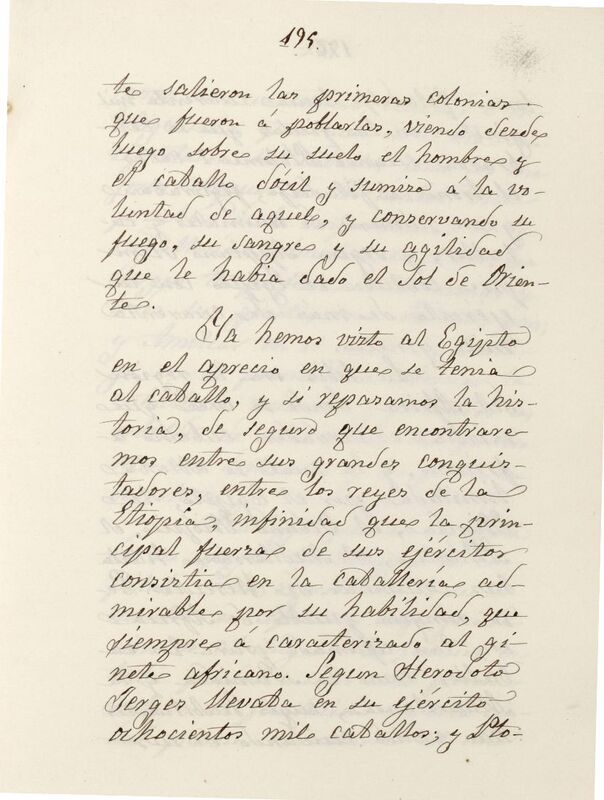 195.
te salieron las primeras colonias
que fueron á poblarlas, viendo desde
luego sobre su suelo el hombre y
el caballo dócil y sumizo á la vo-
luntad de aquel, y conservando su
fuego, su sangre y su agilidad
que le habia dado el Sol de Orien-
te.
Ya hemos visto al Egipto
en el aprecio en que se tenia
al caballo, y si repasamos la his-
toria, de seguro que encontrare
mos entre sus grandes conquis-
tadores, entre los reyes de la
Etiopia, infinidad que la prin-
cipal fuerza de sus ejércitos
consistia en la caballería ad-
mirable por su habilidad, que
siempre á caracterizado al gi-
nete africano. Segun Herodoto
Jerges llevaba en su ejército
ochocientos mil caballos; y Pto-